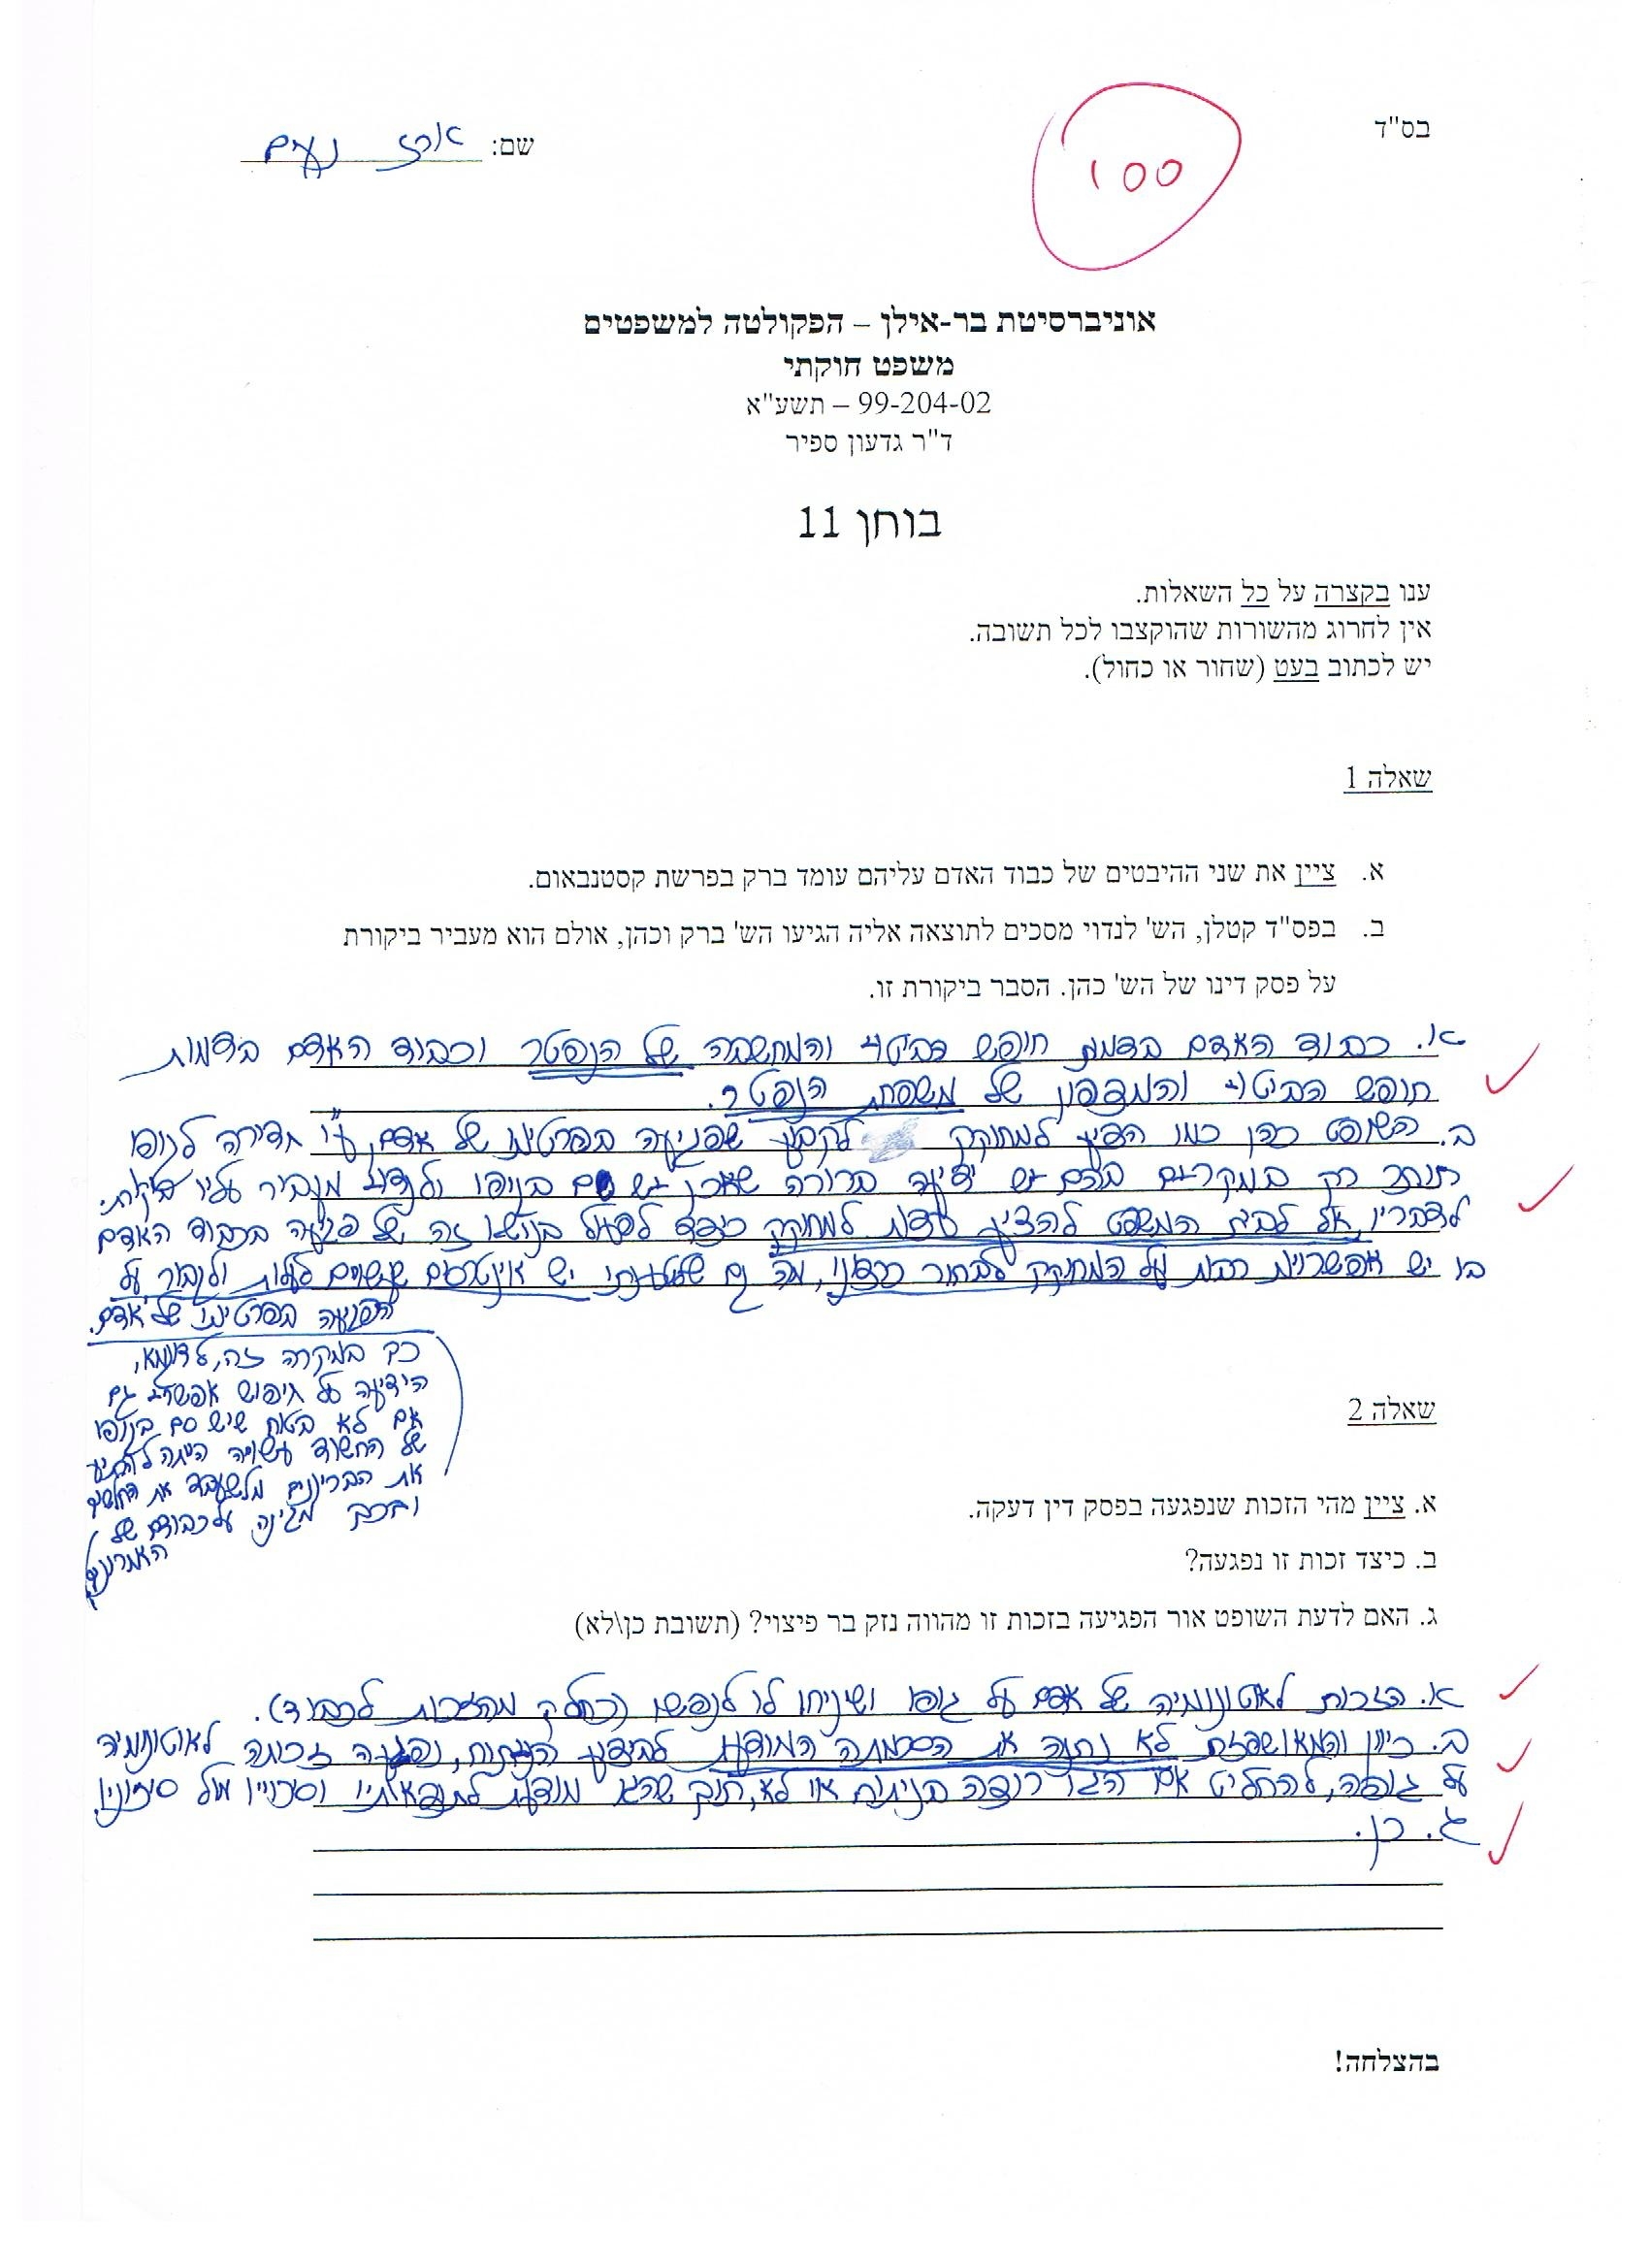 בס"ד
שם: ארז נעים
100
אוניברסיטת בר-אילן – הפקולטה למשפטים
משפט חוקתי
99-204-02 – תשע"א
ד"ר גדעון ספיר
בוחן 11
ענו בקצרה על כל השאלות.
אין לחרוג מהשורות שהוקצבו לכל תשובה.
יש לכתוב בעט (שחור או כחול).
שאלה 1
א. ציין את שני ההיבטים של כבוד האדם עליהם עומד ברק בפרשת קסטנבאום.
ב. בפס"ד קטלן, הש' לנדוי מסכים לתוצאה אליה הגיעו הש' ברק וכהן, אולם הוא מעביר ביקורת
על פסק דינו של הש' כהן. הסבר ביקורת זו.
א. כבוד האדם בדמות חופש הביטוי והמחשבה של הנפטר וכבוד האדם בדמות
חופש הביטוי והמצפון של משפחת הנפטר.
ב. השופט כהן כמו הציע למחוקק לקבוע שפגיעה בפרטיותו של אדם, ע"י חדירה לגופו
תותר רק במקרים בהם יש ידיעה ברורה שאכן יש סם בגופו ולנדוי מעביר עליו ביקורת.
לדבריו, אל לבית המשפט להציע עצות למחוקק כיצד לפעול בנושא זה של פגיעה בכבוד האדם
בו יש אפשרויות רבות על המחוקק לבחור כרצונו, מה גם שלטענתו יש אינטרסים שעשויים לעלות ולגבור על
הפגיעה בפרטיותו של אדם.
כך במקרה זה, לדוגמא,
הידיעה על חיפוש אפשרי גם
אם לא בטוח שיש סם בגופו
של החשוד עשויה הייתה להרתיע
את הבריונים מלשעבד את החלשים
ובכך מגינה על כבודם של
האחרונים
שאלה 2
א. ציין מהי הזכות שנפגעה בפסק דין דעקה.
ב. כיצד זכות זו נפגעה?
ג. האם לדעת השופט אור הפגיעה בזכות זו מהווה נזק בר פיצוי? (תשובת כן\לא)
א. הזכות לאוטונומיה של אדם על גופו ושיניחו לו לנפשו (כחלק מהזכות לכבוד).
ב. כיוון והמאושפזת לא נתנה את הסכמתה המודעת לביצוע הניתוח, נפגעה זכותה לאוטונומיה
על גופה, להחליט אם רוצה בניתוח או לא, תוך שהיא מודעת וסיכוייו מול סיכוניו
ג. כן.
בהצלחה!